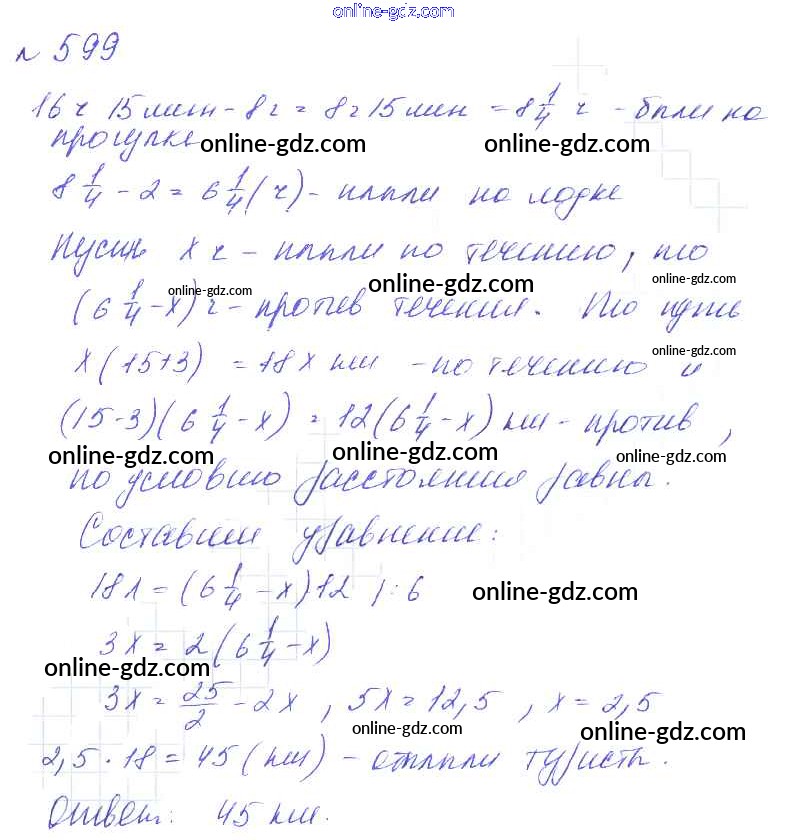 online-gdz.com
№ 599
16 ч 15 мин - 8 ч = 8 ч 15 мин = 8 1/4 ч - были на
прогулке
online-gdz.com online-gdz.com
8 1/4 - 2 = 6 1/4 (ч) - плыли на лодке
Пусть x ч - плыли по течению, то
online-gdz.com online-gdz.com online-gdz.com
(6 1/4 - x) ч - против течения. То путь
x(15+3) = 18x км - по течению и
online-gdz.com
(15-3)(6 1/4 - x) = 12(6 1/4 - x) км - против,
online-gdz.com online-gdz.com online-gdz.com
по условию расстояния равны.
Составим уравнение:
18x = (6 1/4 - x)12 /:6
online-gdz.com
3x = 2(6 1/4 - x)
online-gdz.com
3x = 25/2 - 2x, 5x = 12,5, x = 2,5
online-gdz.com online-gdz.com
2,5 · 18 = 45 (км) - отплыли туристы.
Ответ: 45 км.